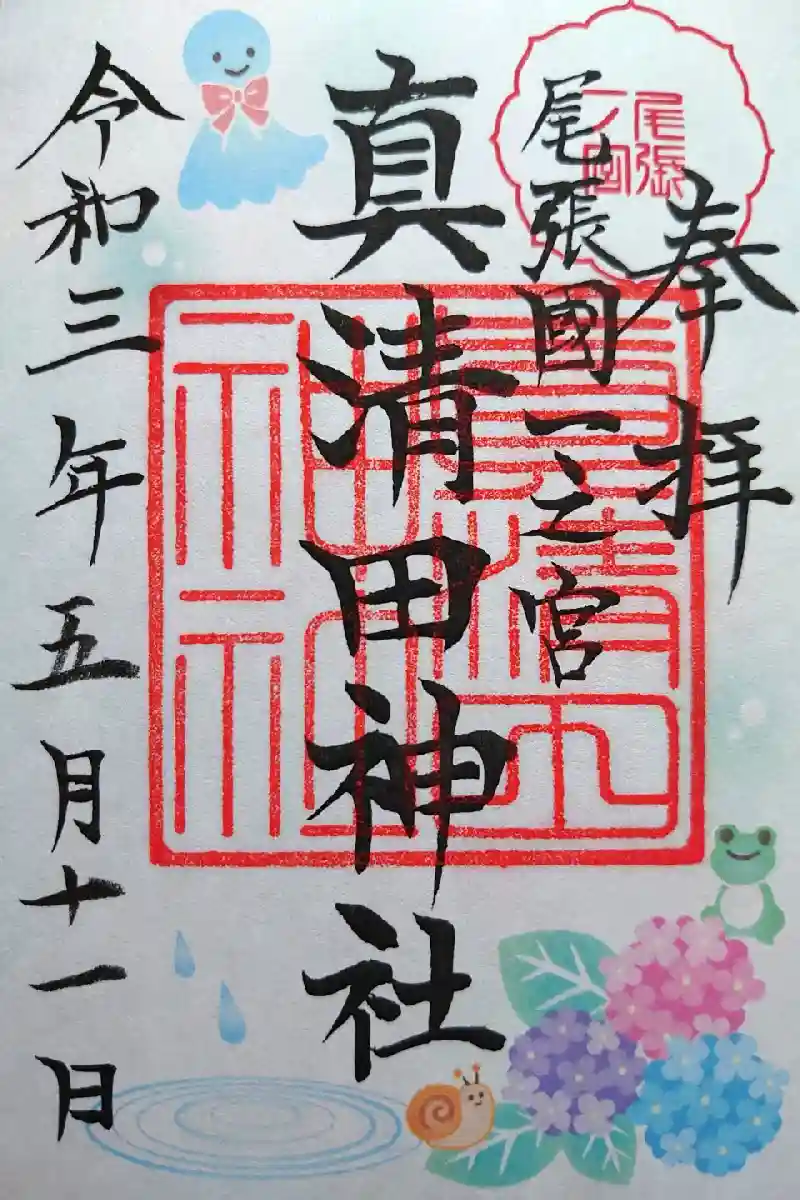 奉拝
尾張
一宮
尾張國一之宮
真清田神社
令和三年五月十一日